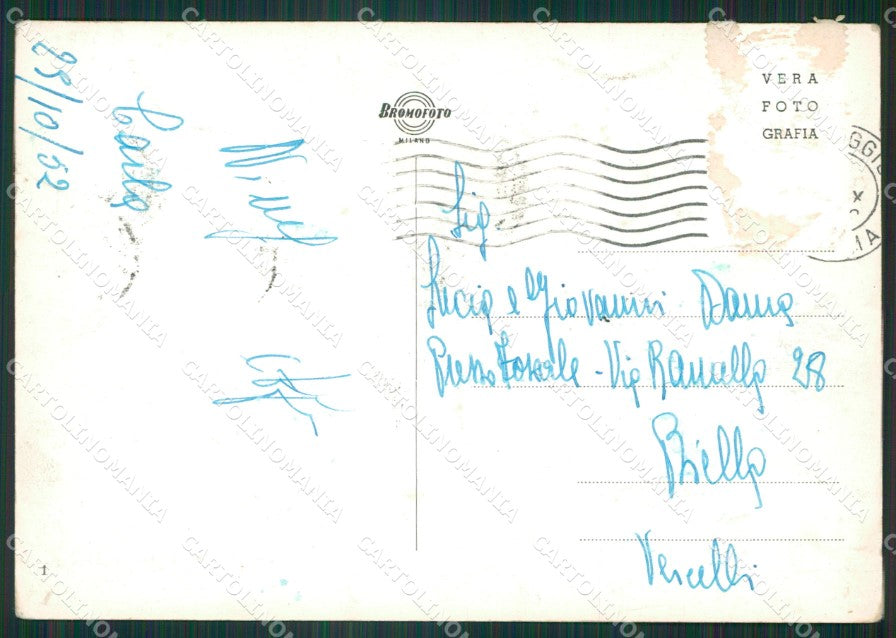 29/10/52
Carlo
BROMOFOTO
MILANO
VERA
FOTO
GRAFIA
Sig
Lucia e Giovanni Dama
Presso - Via Ravalla 28
Biella
Vercelli
1
CARTOLINOMANIA